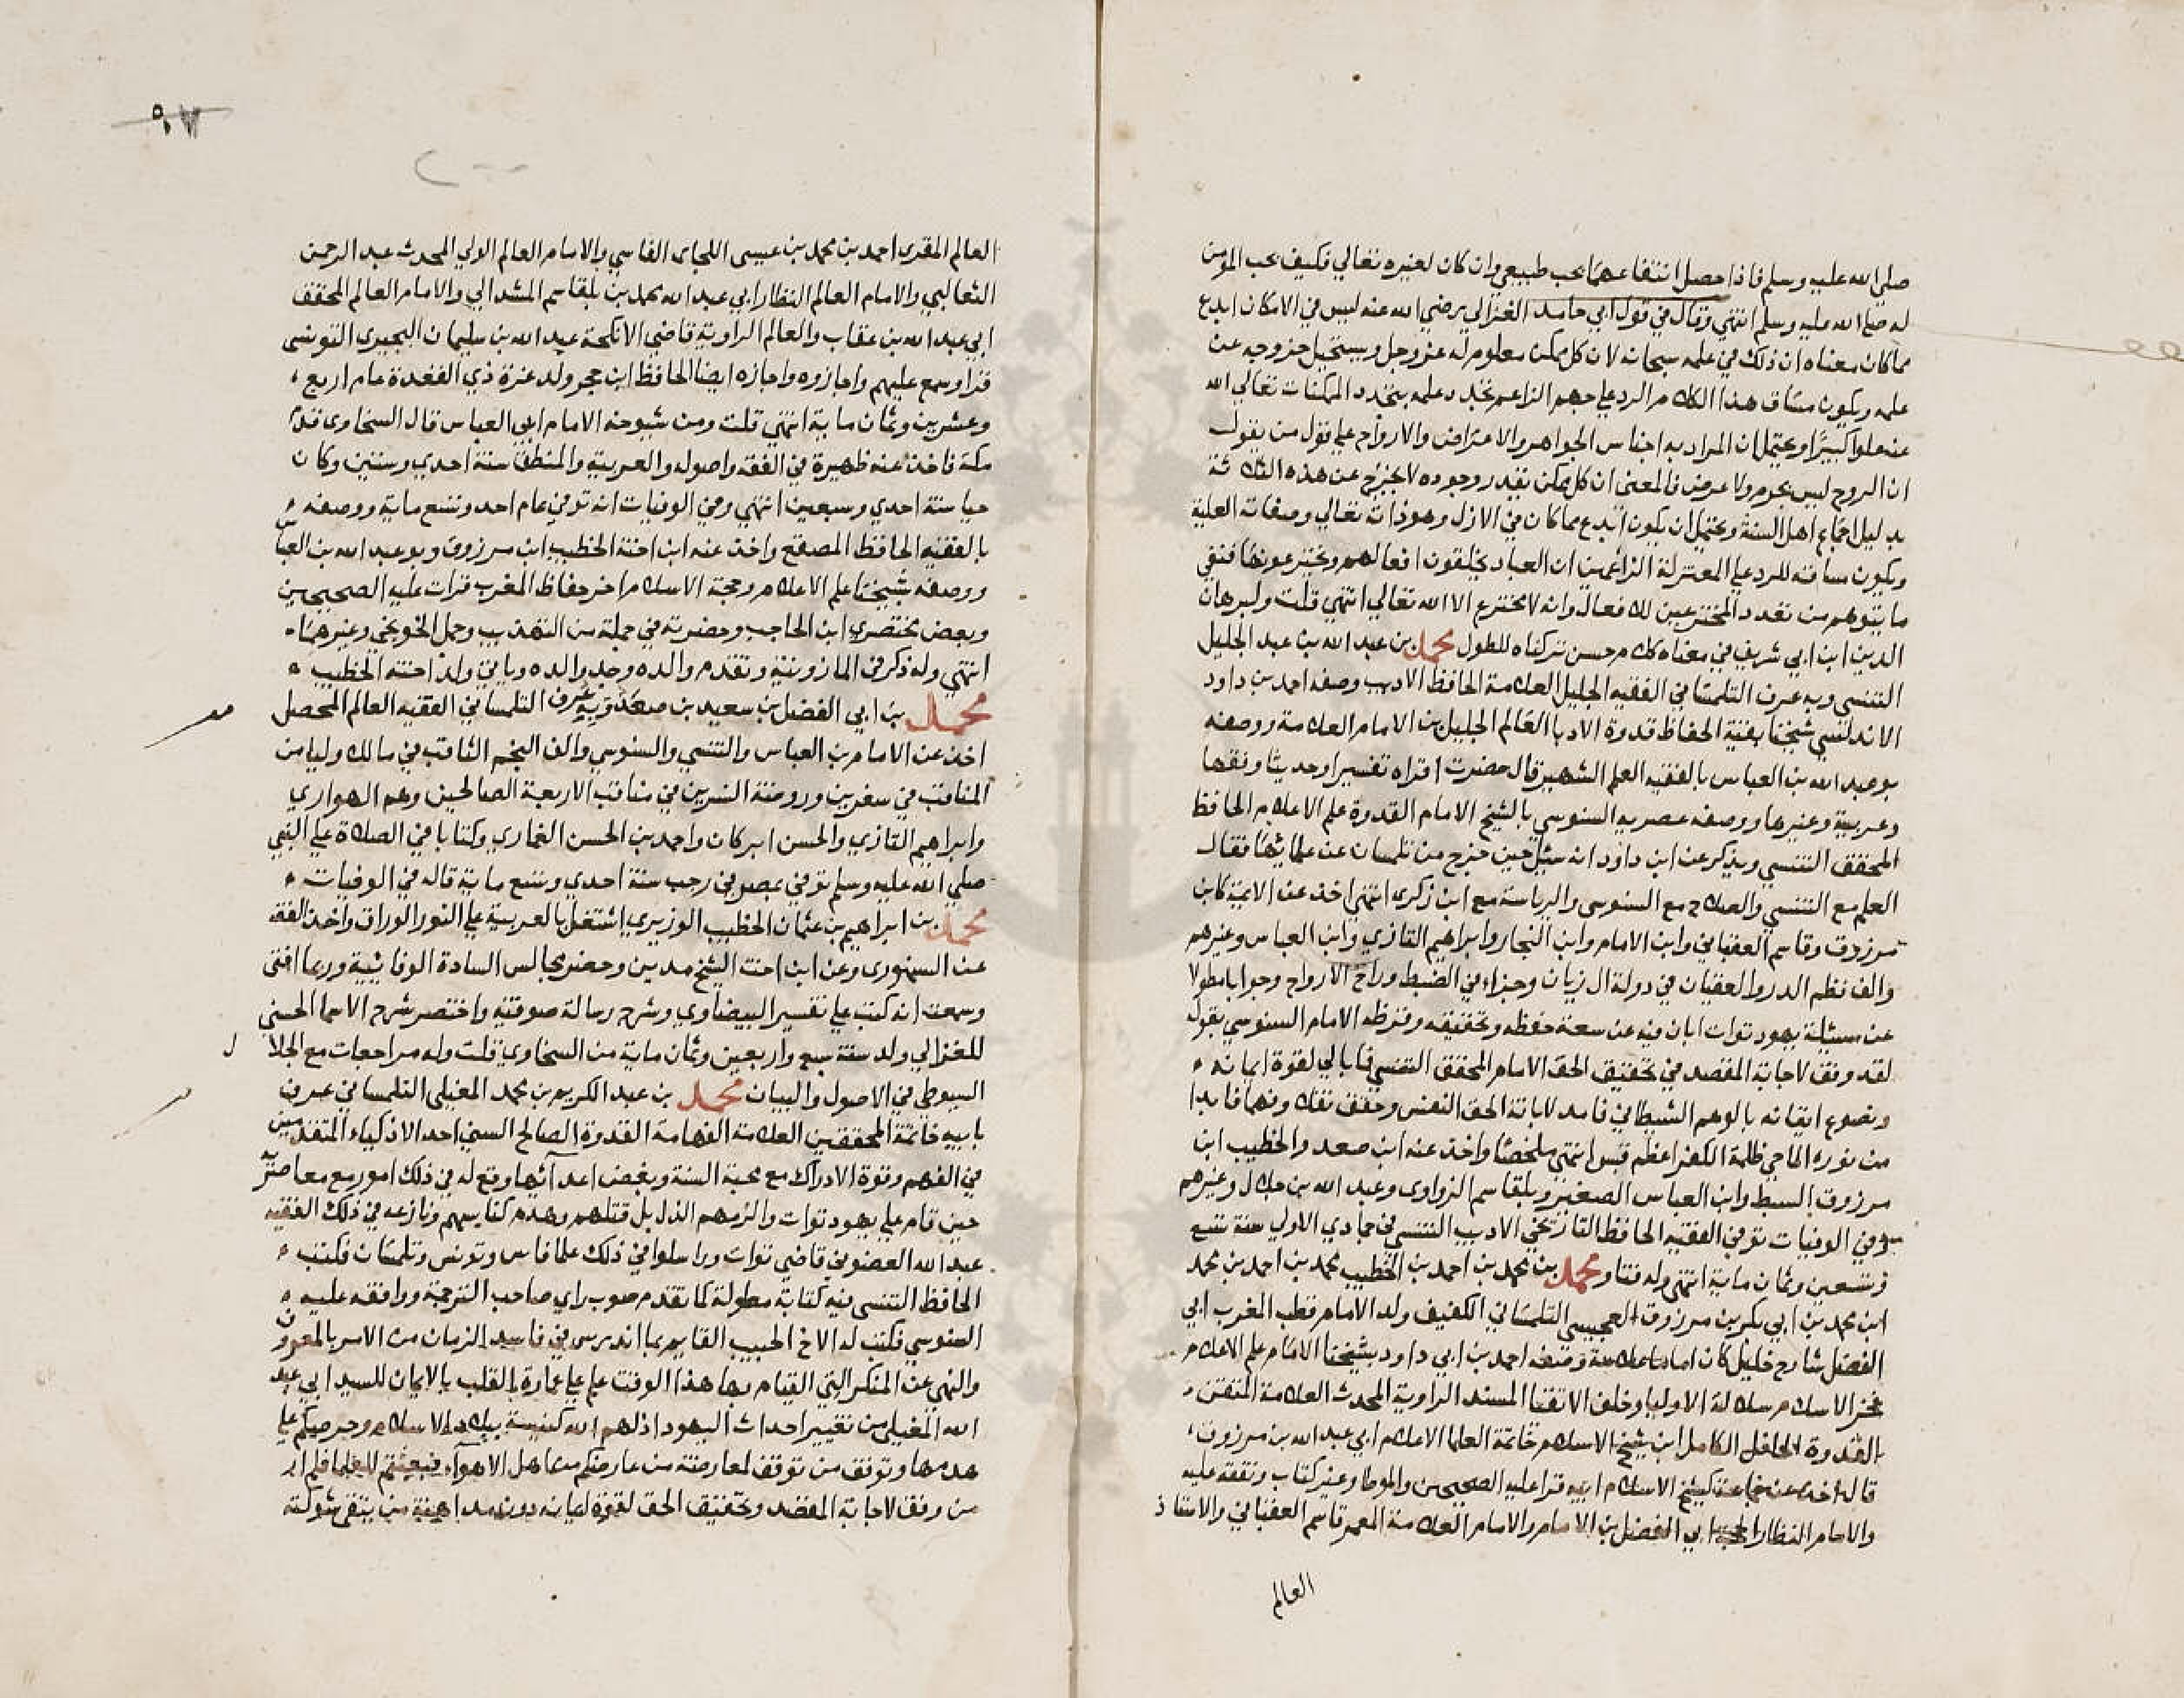 صلي الله عليه وسلم فاذا حصل انتفاعهما بحب طبيعي وان كان لغيره تعالي فكيف بحب المؤمن
له صلى الله عليه وسلم انتهي وقال في قول ابي حامد الغزالي رضي الله عنه ليس في الامكان ابدع
مما كان معناه ان ذلك في علمه سبحانه لان كل ممكن معلوم له عز وجل ويستحيل خروجه عن
علمه ويكون مساق هذا الكلام الرد علي جهم الزاعم تجدد علمه بتجدد الممكنات تعالي الله
عنه علوا كبيرا ويحتمل ان المراد به اجناس الجواهر والاعتراض والارواح علي قول من يقول
ان الروح ليس بجرم ولا عرض فالمعنى ان كل ممكن يقدر وجوده لا يخرج عن هذه الثلاثة
بدليل اجماع اهل السنة ويحتمل ان يكون ابدع مما كان في الازل وهو ذاته تعالي وصفاته العلية
ويكون مساقه للرد علي المعتزلة الزاعمين ان العباد يخلقون افعالهم ويخترعونها فنفي
ما يتوهم من تعدد المخترعين للافعال وانه لا مخترع الا الله تعالي انتهي قلت ولبرهان
الدين ابن ابي شريف في معناه كلام حسن تركناه للطول محمد بن عبد الله بن عبد الجليل
التنسي وبه عرف التلمساني الفقيه الجليل العلامة الحافظ الاديب وصفه احمد بن داود
الاندلسي شيخنا بقية الحفاظ قدوة الادبا العالم الجليل بن الامام العلامة ووصفه
بوعبد الله بن العباس بالفقيه العلم الشهير قال حضرت اقراه تفسيرا وحديثا وفقها
وعربية وغيرها ووصفه عصريه السنوسي بالشيخ الامام القدوة علم الاعلام الحافظ
المحقق التنسي ويذكر عن ابن داود انه سئل حين خرج من تلمسان عن علمائها فقال
العلم مع التنسي والصلاح مع السنوسي والرياسة مع ابن زكري انتهي اخذ عن الايمة كابن
مرزوق وقاسم العقباني وابن الامام وابن النجار وابراهيم التازي وابن العباس وغيرهم
والف نظم الدر والعقيان في دولة ال زيان وجزاء في الضبط وراح الارواح وجوابا مطولا
عن مسئلة يهود توات ابان فيه عن سعة حفظه وتحقيقه وقرظه الامام السنوسي بقوله
لقد وفق لاجابة المقصد في تحقيق الحق الامام المحقق التنسي فابالي لقوة ايمانه
ونصوع ايقانه بالوهم الشيطاني فامد لابانة الحق النفس وحقق نقلا وفهما فابدا
من نوره الماحي ظلمة الكفر اعظم قبس انتهي ملخصا واخذ عنه ابن صعد والخطيب ابن
مرزوق السبط وابن العباس الصغير وبلقاسم الزواوي وعبد الله بن جلال وغيرهم
وفي الوفيات توفي الفقيه الحافظ التاريخي الاديب التنسي في جمادي الاولي سنة تسع
وتسعين وثمان ماية انتهي وله فتاو محمد بن محمد بن احمد بن الخطيب محمد بن احمد بن محمد
ابن محمد بن ابي بكر بن مرزوق العجيسي التلمساني الكفيف ولد الامام قطب المغرب ابي
الفضل شارح خليل كان اماما علامة وصفه احمد بن ابي داود بشيخنا الامام علم الاعلام
فخر الاسلام سلالة الاوليا وخلف الاتقيا المسند الراوية المحدث العلامة المتفنن
القدوة الحافل الكامل ابن شيخ الاسلام خاتمة العلما الاعلام ابي عبد الله بن مرزوق
قال اخذ عن جماعة كشيخ الاسلام ابيه قرا عليه الصحيحين والموطا وغير كتاب وتفقه عليه
والامام النظار الحجة ابي الفضل بن الامام والامام العلامة المعمر قاسم العقباني والاستاذ
العالم
العالم المقري احمد بن محمد بن عيسى اللجاى الفاسي والامام العالم الولي المحدث عبد الرحمن
الثعالبي والامام العالم النظار ابي عبد الله محمد بن بلقاسم المشدالي والامام العالم المحقق
ابي عبد الله بن عقاب والعالم الراوية قاضي الانكحة عبد الله بن سليمان البجيري التونسي
قرا وسمع عليهم واجازوه واجازه ايضا الحافظ ابن حجر ولد غرة ذي القعدة عام اربع
وعشرين وثمان ماية انتهي قلت ومن شيوخه الامام ابي العباس قال السخاوى قدم
مكة فاخذ عنه ظهيرة في الفقه واصوله والعربية والمنطق سنة احدي وستين وكان
حيا سنة احدي وسبعين انتهي وفي الوفيات انه توفي عام احد وتسع ماية ووصفه
بالفقيه الحافظ المصقع واخذ عنه ابن اخته الخطيب ابن مرزوق وبوعبد الله بن العباس
ووصفه بشيخنا علم الاعلام وحجة الاسلام اخر حفاظ المغرب قرات عليه الصحيحين
وبعض مختصري ابن الحاجب وحضرته في جملة من التهذيب وجمل الخونجي وغيرهما
انتهي وله ذكر في المازونية وتقدم والده وجد والده وياتي ولد اخته الخطيب
محمد بن ابي الفضل بن سعيد بن صعد وبه عرف التلمساني الفقيه العالم المحصل
اخذ عن الامام بن العباس والتنسي والسنوسي والف النجم الثاقب في ما لله من
المناقب في سفرين وروضة النسرين في مناقب الاربعة الصالحين وهم الهواري
وابراهيم التازي والحسن ابركان واحمد بن الحسن الغماري وكتابا في الصلاة علي النبي
صلي الله عليه وسلم توفي بمصر في رجب سنة احدي وتسع ماية قاله في الوفيات
محمد بن ابراهيم بن عثمان الخطيب الوزيري اشتغل بالعربية علي النور الوراق واخذ الفقه
عن السنهوري وعن ابن اخت الشيخ مدين وحضر مجالس السادة الوفائيية وربما افتى
وسمعت انه كتب علي تفسير البيضاوي وشرح رسالة صوفية واختصر شرح الاسما الحسني
للغزالي ولد سنة سبع واربعين وثمان ماية من السخاوي قلت وله مراجعات مع الجلال
السيوطي في الاصول والبيان محمد بن عبد الكريم بن محمد المغيلي التلمساني عرف
بابيه خاتمة المحققين العلامة الفهامة القدوة الصالح السني احد الاذكياء المتقدمين
في الفهم وقوة الادراك مع محبة السنة وبغض اعدائها وقع له في ذلك امور مع معاصريه
حين قام علي يهود توات والزمهم الذل بل قتلهم وهدم كنايسهم ونازعه في ذلك الفقيه
عبد الله العصنوني قاضي توات وراسلوا في ذلك علما فاس وتونس وتلمسان فكتب
الحافظ التنسي فيه كتابة مطولة كما تقدم صوب راي صاحب الترجمة ووافقه عليه
السنوسي فكتب له الاخ الحبيب القايم بما اندرس في فاسد الزمان من الامر بالمعروف
والنهي عن المنكر التي القيام بها هذا الوقت علم علي عمارة القلب بالايمان للسيد ابي عبد
الله المغيلي من تغيير احداث اليهود اذلهم الله كنيسة ببلاد الاسلام وحرضكم علي
هدمها وتوقف من توقف لمعارضة من عارضكم من اهل الاهوآء فبعثتم للعلما فلم ار
من وفق لاجابة المقصد وتحقيق الحق لقوة ايمانه دون مداهنة من يتقي شوكته